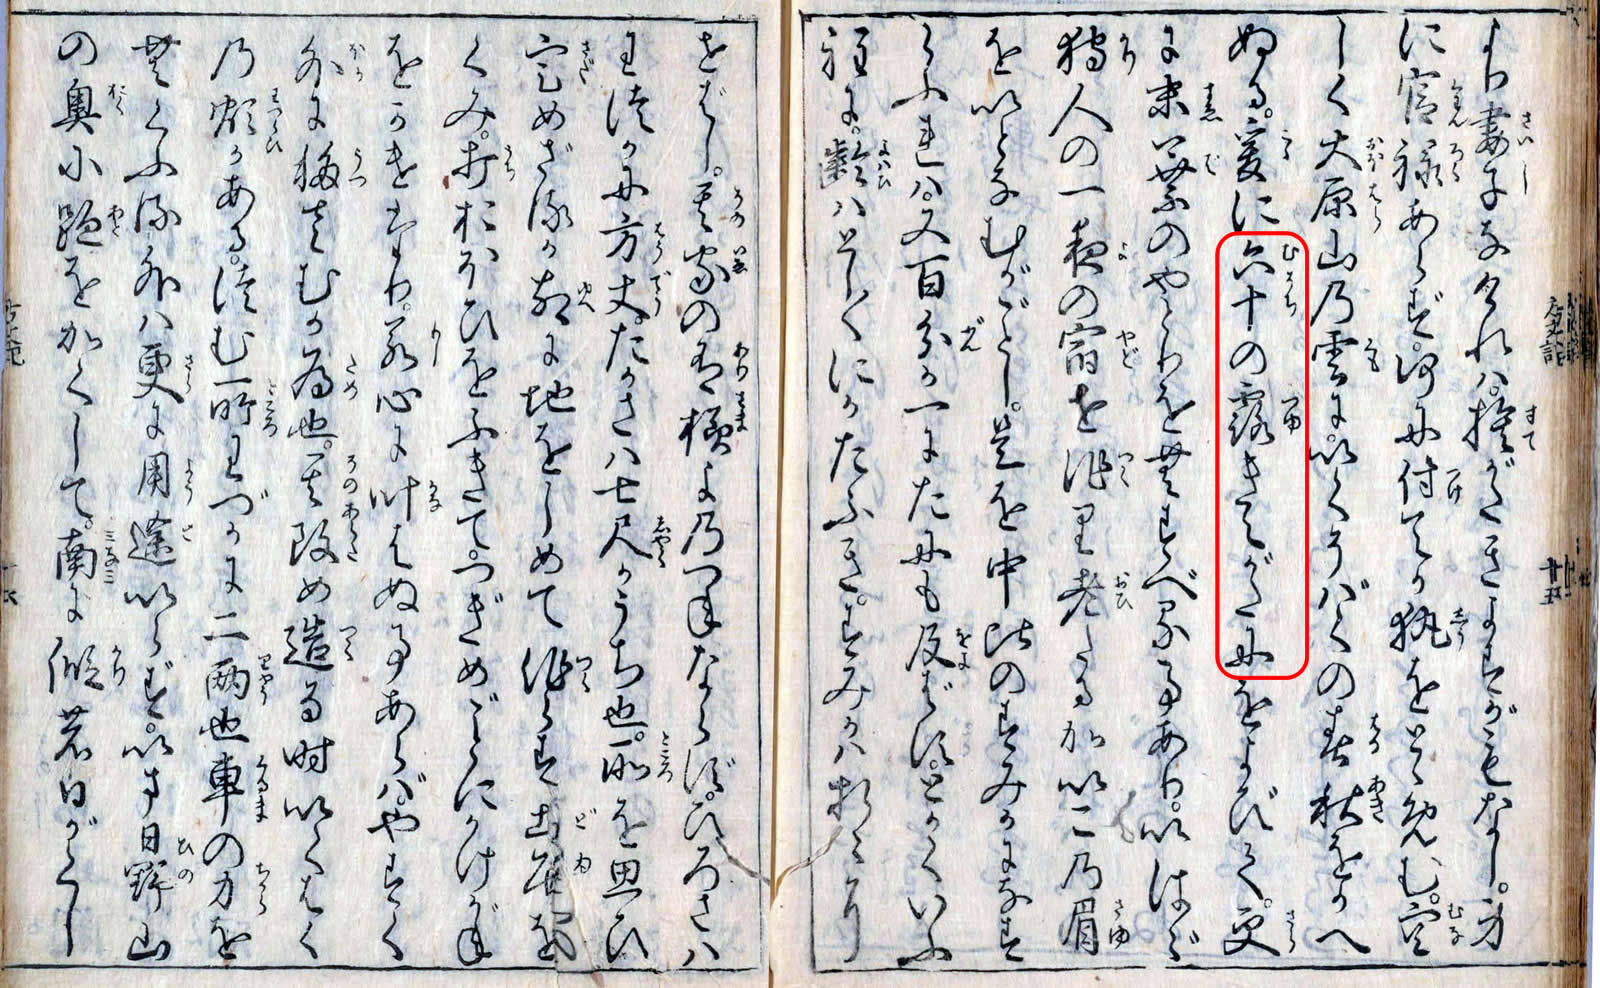 より妻子なければ。捨がたきよすがもなし。身
に官禄あらず。何に付てか執をとゞめむ。空
しく大原山乃雲に。いくそばくの春秋をかへ
ぬる。爰に六十の露きえがたにをよびて。更
に末葉のやどりをむすべる事あり。いはゞ
狩人の一夜の宿を作り老たるかいこ乃眉
をいとなむがごとし。是を中比のすみかになず
らふれば。又百分が一にだにも及ばず。とかくいふ
程に。齢はとし〴〵にかたふき。すみかは折〳〵に
せばし。其家の有様よ乃つねならず。ひろさは
わづかに方丈。たかさは七尺がうち也。所を思ひ
定めざるが故に地をしめて作らず土居を
くみ。打おほひをふきて。つぎめごとにかけがね
をかけたり。若心に叶はぬ事あらば。やすく
外に移さむが為也。其改め造る時いくばく
乃煩かある。積む所わづかに二両也車の力を
むくふる外は更に用途いらず。いま日野山
の奥に跡をかくして。南に假の日がくし